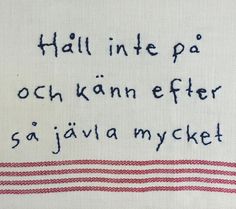 Håll inte på
och känn efter
så jävla mycket